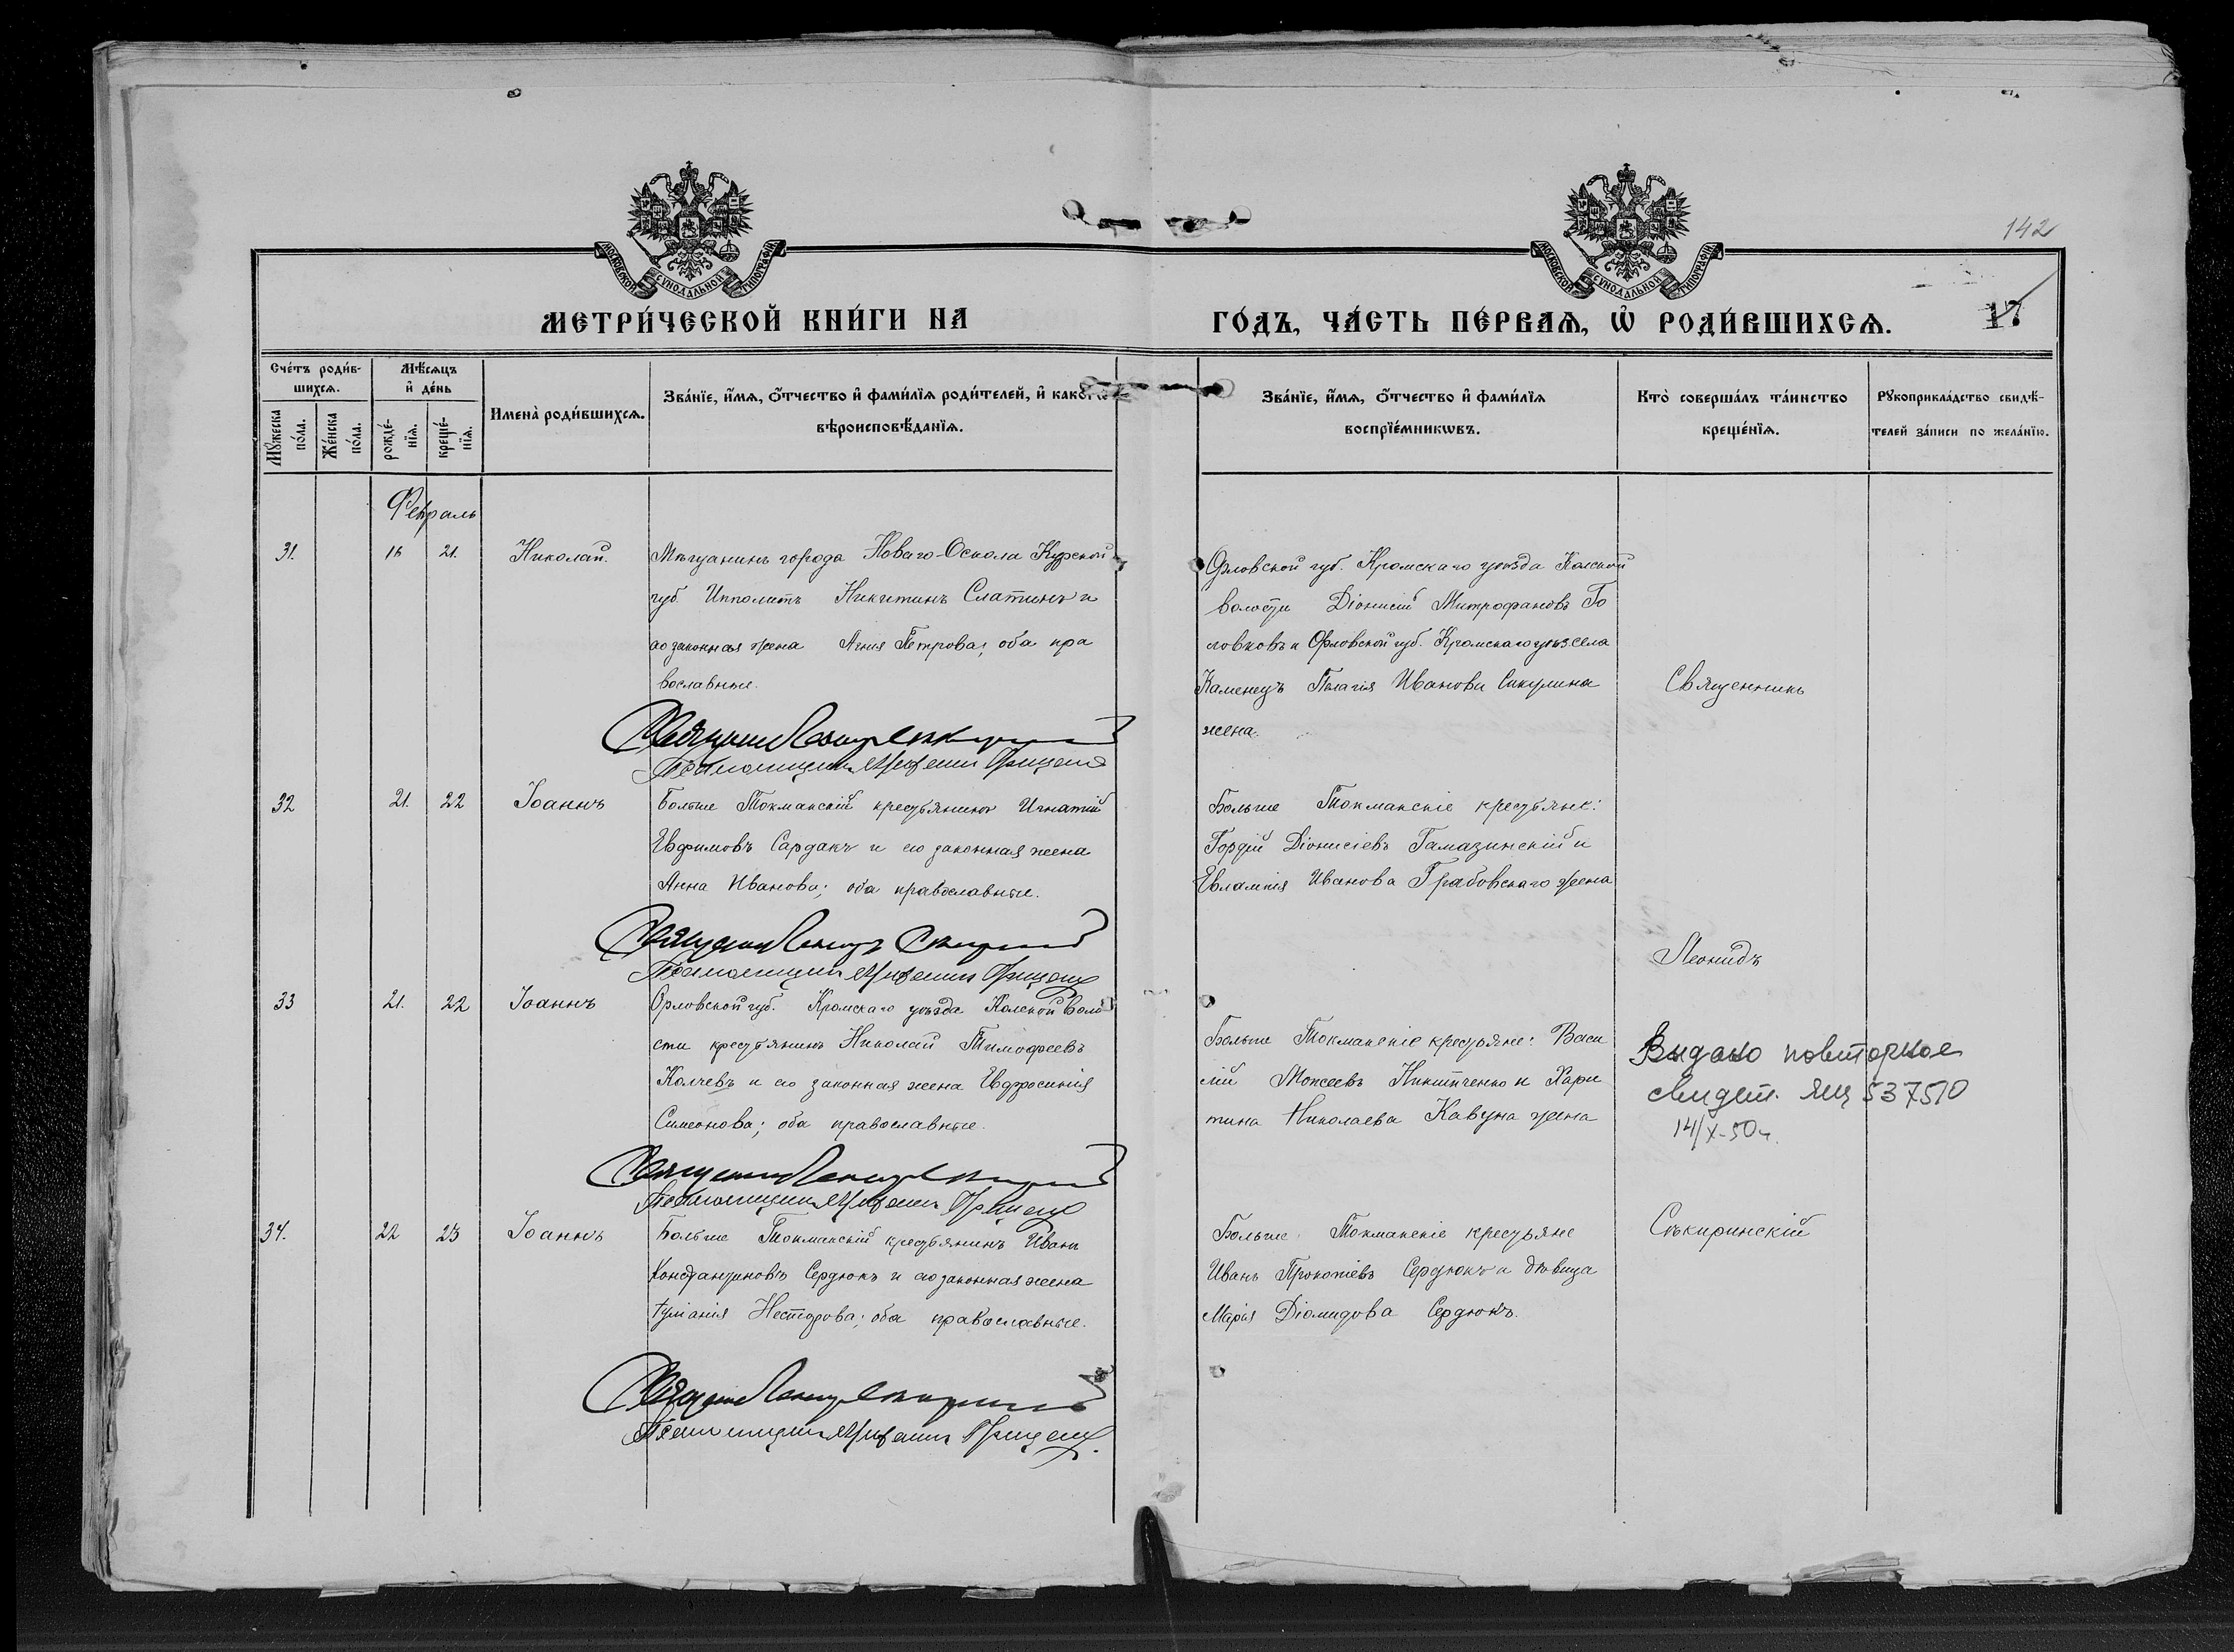 142
МОСКОВСКОЙ СѴНОДАЛЬНОЙ ТИПОГРАФІИ
МОСКОВСКОЙ СѴНОДАЛЬНОЙ ТИПОГРАФІИ
МЕТРИ́ЧЕСКОЙ КНИ́ГИ НА ГО́ДЪ, ЧА́СТЬ ПЕ́РВАѦ, Ѡ҆ РОДИ́ВШИХСѦ. 17
Сче́тъ роди́в-
шихсѧ.
Мꙋ́жеска по́ла.
Же́нска по́ла.
Мѣ́сѧцъ
и҆ де́нь
рожде́-
нїѧ.
креще́-
нїѧ.
Имена̀ роди́вшихсѧ.
Зва́нїе, и҆́мѧ, ѻ҆́тчество и҆ фами́лїѧ роди́телей, и҆ како́гѡ
вѣроисповѣ́данїѧ.
Зва́нїе, и҆́мѧ, ѻ҆́тчество и҆ фами́лїѧ
воспрїе́мникѡвъ.
Кто̀ соверша́лъ та́инство
креще́нїѧ.
Рꙋкоприкла́дство свидѣ́-
телей за́писи по жела́нїю.
Февраль
31. 16 21. Николай.
Мѣщанинъ города Новаго-Оскола Курской
губ. Ипполитъ Никитинъ Слатинъ и
его законная жена Агнія Петрова; оба пра
вославные.
Орловской губ. Кромскаго уѣзда Колской
волости Діонисій Митрофановъ Го
ловковъ и Орловской губ. Кромскаго уѣз села
Каменецъ Пелагія Иванова Сикулина
жена.
Священникъ
32 21. 22 Іоаннъ
Больше Токмакскій крестьянинъ Игнатій
Евфимовъ Сардакъ и его законная жена
Анна Иванова; оба православные.
Больше Токмакскіе крестьяне:
Гордій Діонисіевъ Гамазинскій и
Евлампія Иванова Грабовскаго жена
Леонидъ
33 21. 22 Іоаннъ
Орловской губ. Кромскаго уѣзда Колской воло
сти крестьянинъ Николай Тимофеевъ
Колчевъ и его законная жена Евфросинія
Симеонова; оба православные.
Больше Токмакскіе крестьяне: Васи
лій Моисеевъ Никитченко и Хари
тина Николаева Кавуна жена
Выдано повторное
свидет. ЯЩ 537510
14/X-50 г.
34. 22 23 Іоаннъ
Больше Токмакскій крестьянинъ Иванъ
Константиновъ Сердюкъ и его законная жена
Іуліанія Несторова; оба православные.
Больше Токмакскіе крестьяне
Иванъ Прокопіевъ Сердюкъ и дѣвица
Марія Діомидова Сердюкъ.
Сѣкиринскій